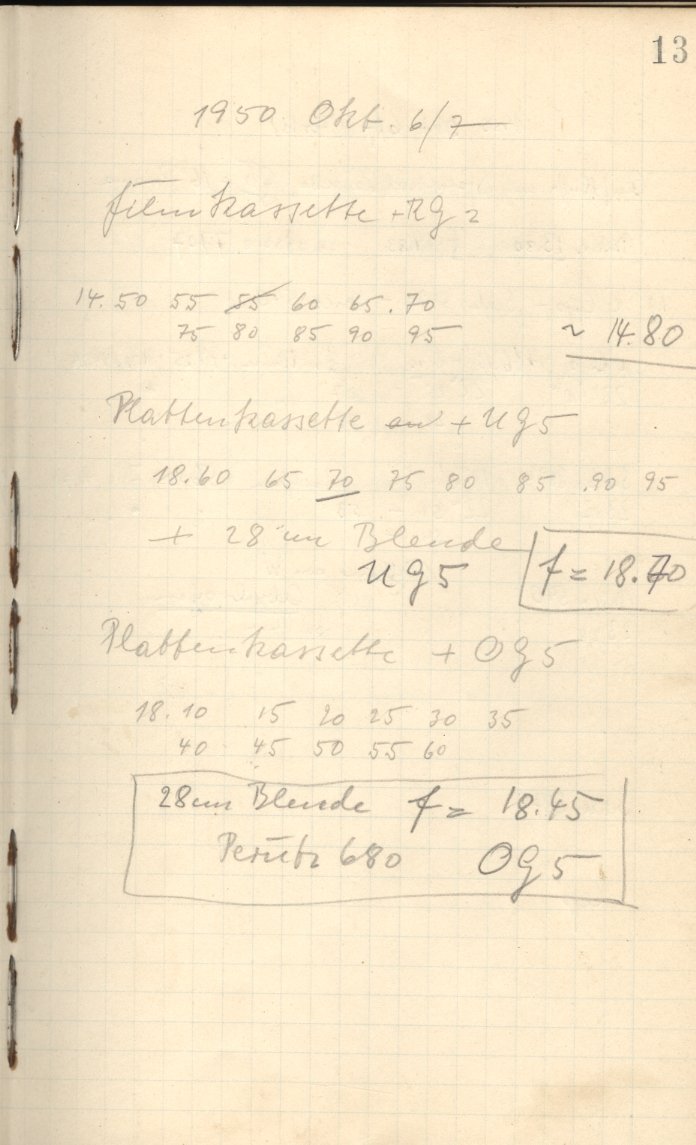 13
1950 Okt. 6/7
Filmkassette + RG2
14.50 55 55 60 65 . 70
75 80 85 90 95 ~ 14.80
Plattenkassette + UG5
18.60 65 70 75 80 85 .90 95
+ 28 cm Blende
UG5 f = 18.70
Plattenkassette + OG5
18.10 15 20 25 30 35
40 45 50 55 60
28cm Blende f = 18.45
Perutz 680 OG5